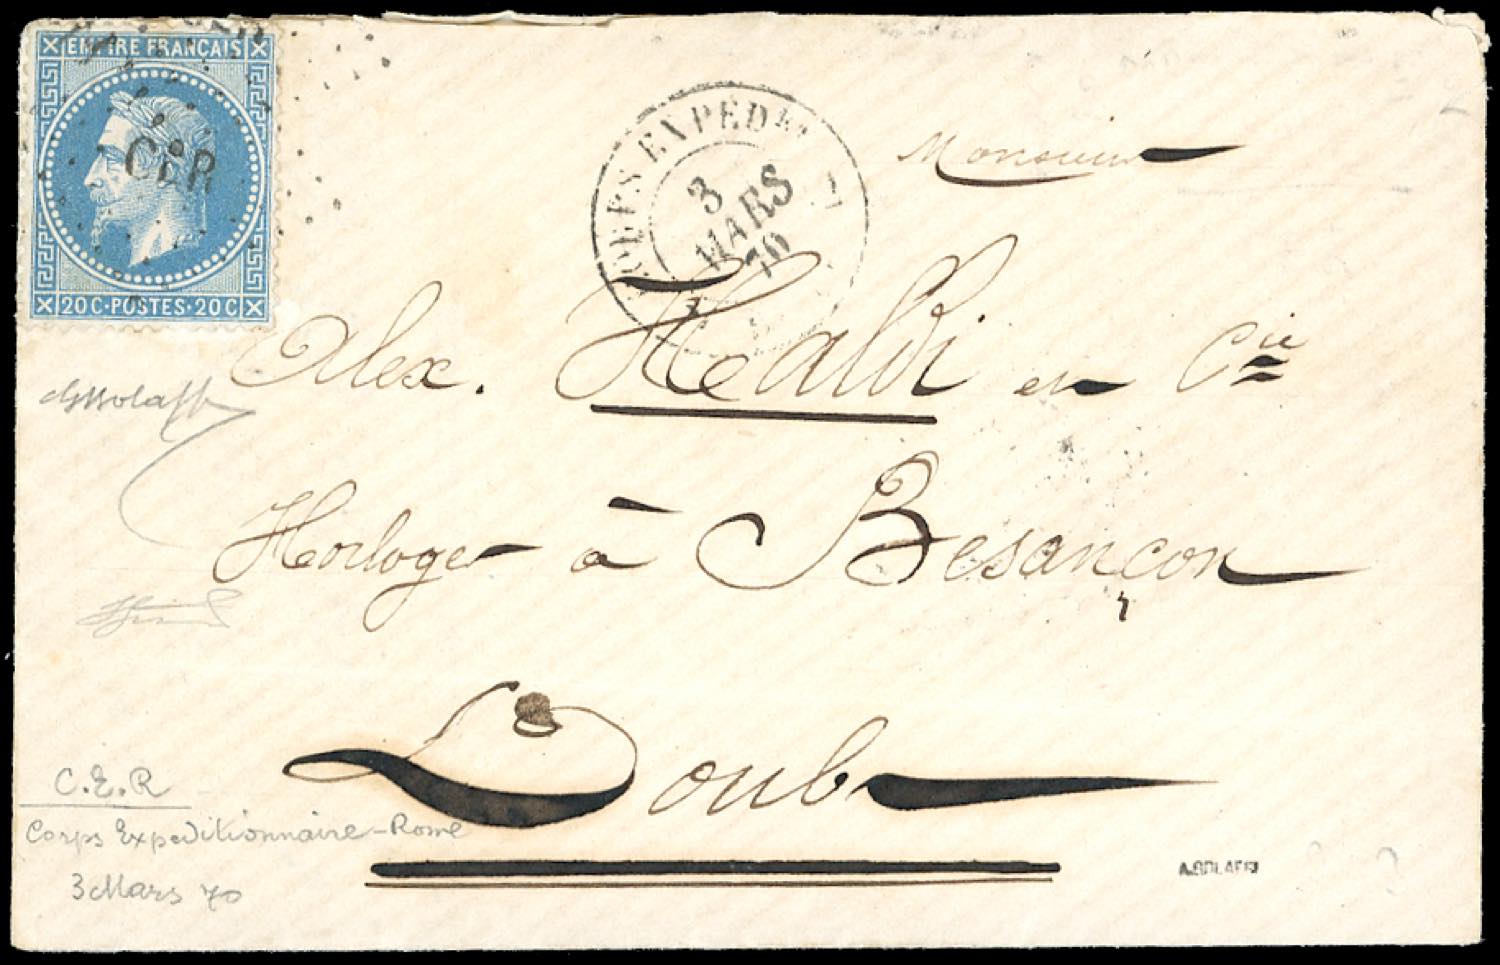 EMPIRE FRANÇAIS
CER
20 C · POSTES · 20 C
EXPED
3
MARS
70
Monsieur
Alex. Haldi et Cie
Horloger à Besançon
Doubs
C.E.R
Corps Expeditionnaire - Rome
3 Mars 70
A.BOLAFFI